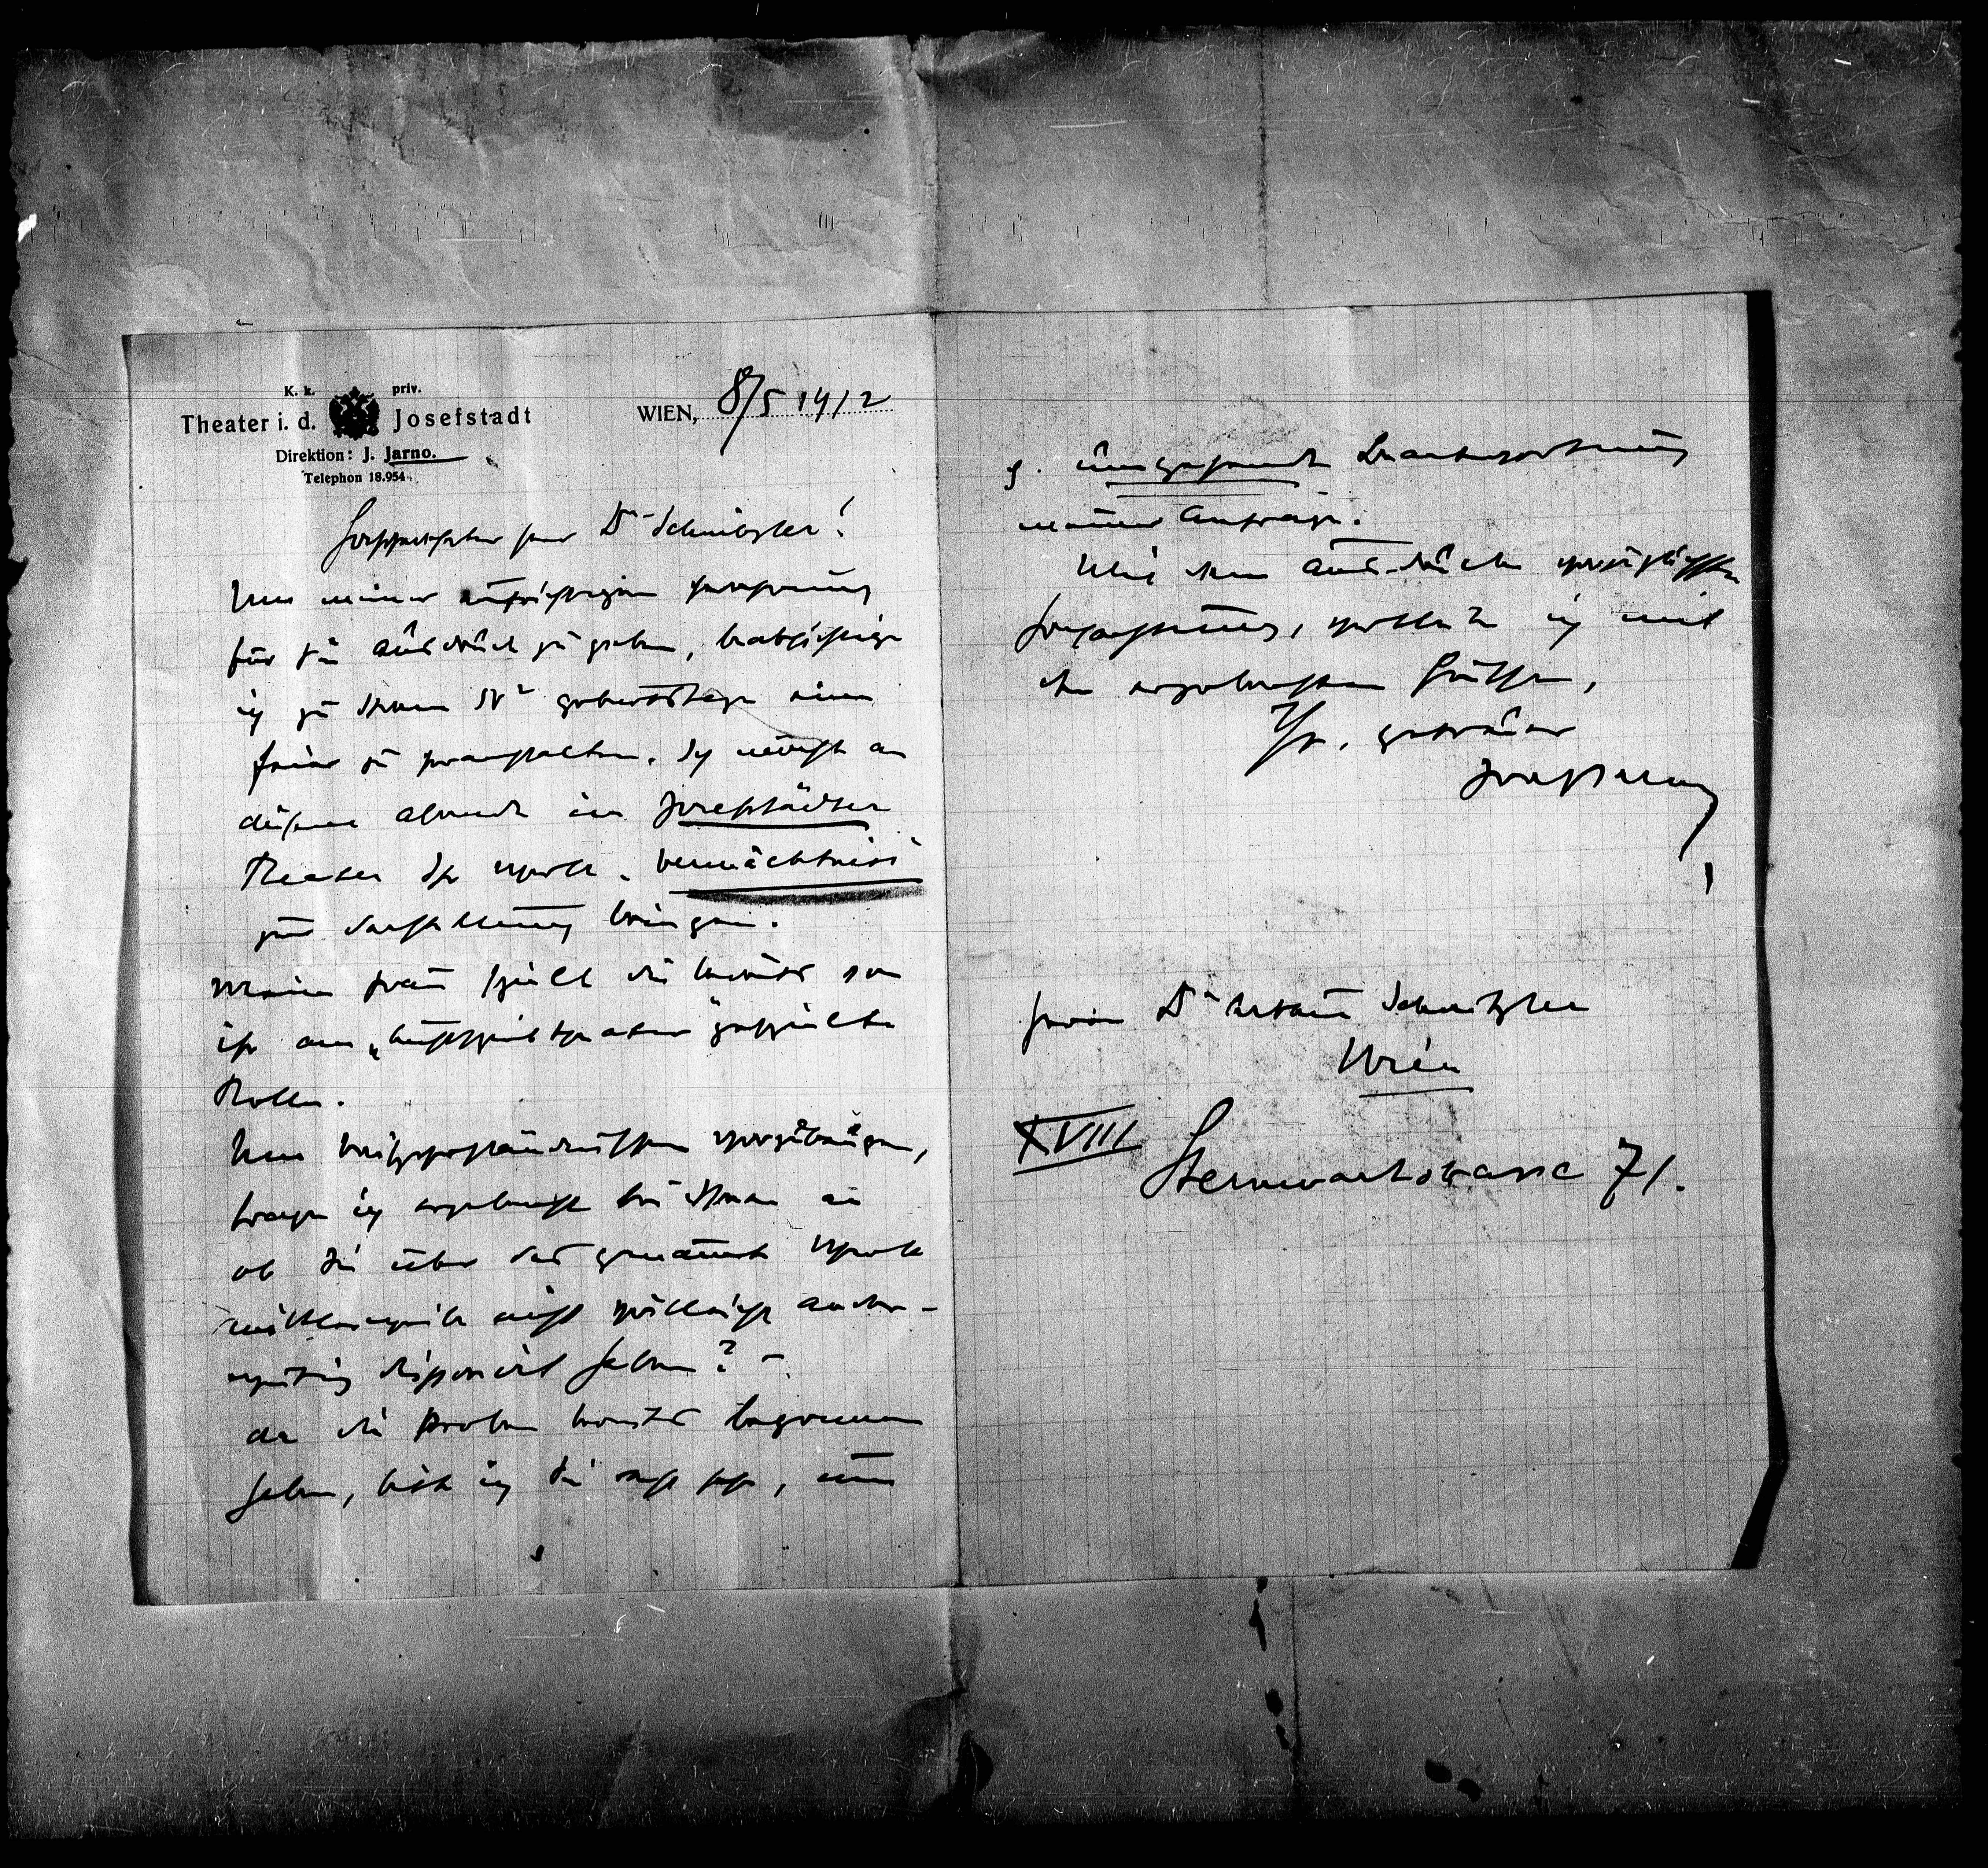 K. k. priv.
Theater i. d. Josefstadt
Direktion: J. Jarno.
Telephon 18.954.
WIEN, 8/5 1912
Hochverehrter Herr Dr Schnitzler!
Um meiner aufrichtigen Verehrung
für Sie Ausdruck zu geben, beabsichtige
ich zu Ihrem 50. Geburtstage eine
Feier zu veranstalten. Ich möchte an
diesem Abende im Josefstädter
Theater Ihr Werk „Vermächtniss
zur Darstellung bringen.
Meine Frau spielt die bereits von
ihr am „Lustspieltheater“ gespielte
Rolle.
Um Missverständnissen vorzubeugen,
frage ich ergebenst bei Ihnen an
ob Sie über das genannte Werk
mittlerweile nicht vielleicht ander-
weitig disponirt haben? –
da die Proben bereits begonnen
haben, bitte ich Sie recht sehr, um
g. umgehende Beantwortung
meiner Anfrage.
Mit dem Ausdrucke vorzüglichster
Hochachtung, verbleibe ich mit
den ergebensten Grüssen,
Ihr, getreuer
Josef Jarno
Herrn Dr Arthur Schnitzler
Wien
XVIII
Sternwartstrasse 71.